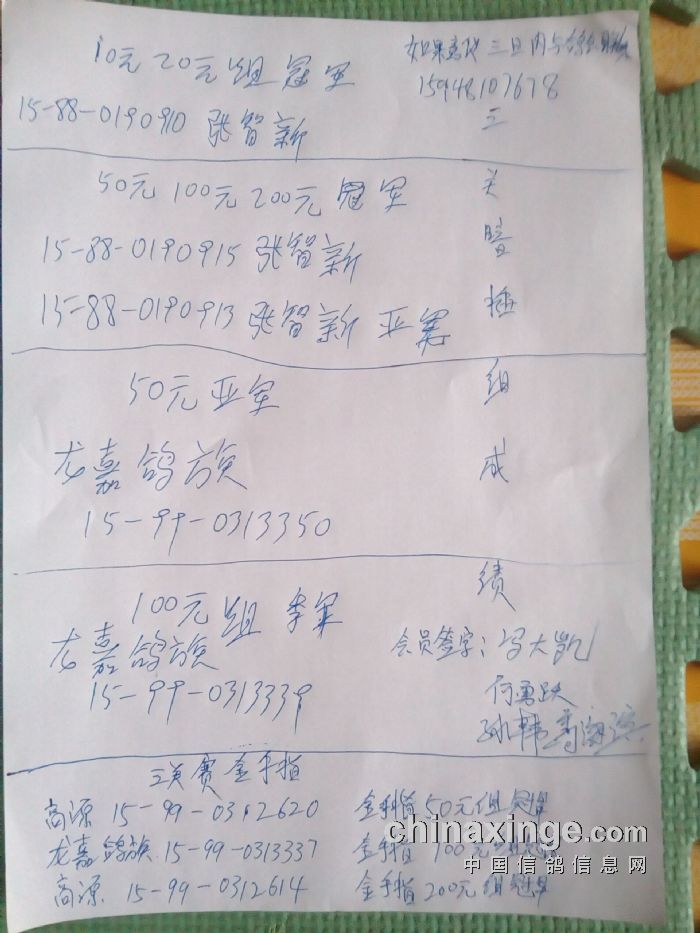 10元20元组冠军
如果离线 三日内与鸽会联
15948107678
15-88-0190910 张智新
50元100元200元冠军
15-88-0190915 张智新
15-88-0190913 张智新 亚军
三
关
暗
插
组
成
绩
50元亚军
龙嘉鸽族
15-99-0313350
100元组季军
龙嘉鸽族
15-99-0313339
会员签字:冯大凯
何勇跃
三关赛金手指
高源 15-99-0312620 金手指50元组冠军
龙嘉鸽族 15-99-0313337 金手指100元组
高源 15-99-0312614 金手指200元组冠军
chinaxinge.com
中国信鸽信息网